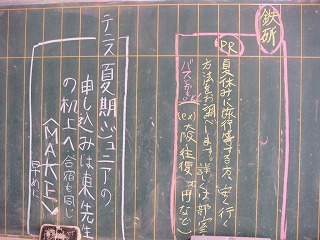 鉄研
PR
夏休みに旅行等する方、安く行く
方法をお調べします。詳しくは部室
バスから。(ex)大阪往復 円など)
テニス
夏期ジュニアの
申し込みは東先生
の机上へ 合宿も同じ
〈MAKE〉早めに